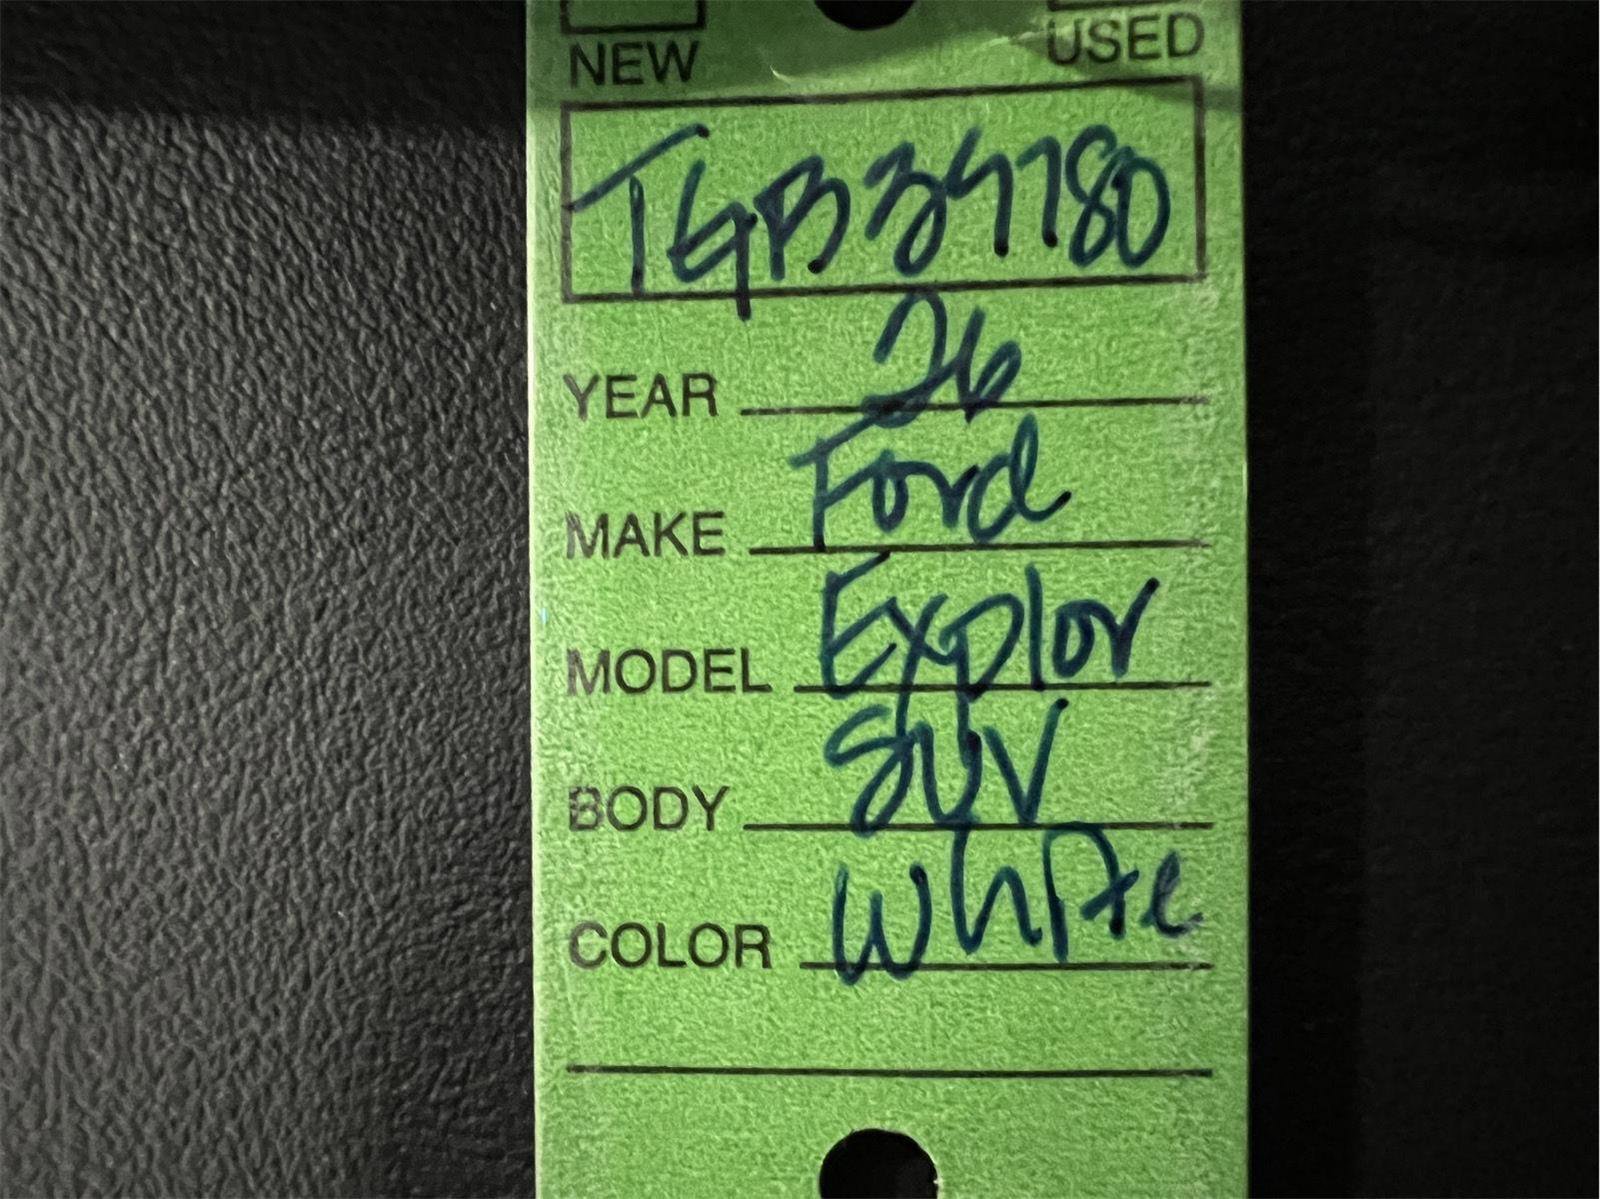 NEW USED
TGB34780
YEAR 26
MAKE Ford
MODEL Explor
BODY SUV
COLOR White